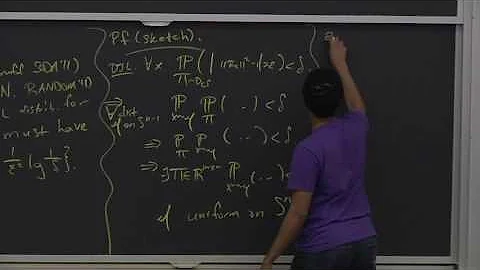 SODA'11)
N. RANDOM'11)
distrib. for
must have
1/ε² lg 1/δ}.
Pf (sketch).
DJL. ∀x ℙ_{Π~D_{ε,δ}} (| ||Πx||²-1|>ε) < δ
∀ dist on S^{n-1} ℙ_{x~} ℙ_Π (..) < δ
⇒ ℙ_Π ℙ_{x~} (...) < δ
⇒ ∃Π∈ℝ^{m×n} ℙ_{x~} (...) <
uniform on S